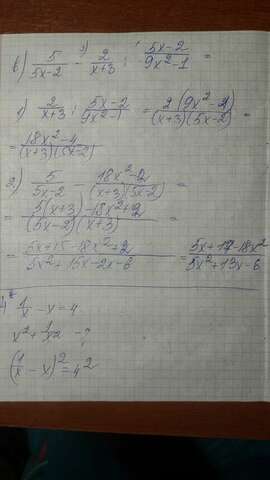 в) 5/(5x-2) - 2/(x+3) : (5x-2)/(9x²-1) =
1) 2/(x+3) : (5x-2)/(9x²-1) = 2(9x²-1)/((x+3)(5x-2)) =
= (18x²-4)/((x+3)(5x-2))
2) 5/(5x-2) - (18x²-2)/((x+3)(5x-2)) =
= (5(x+3)-18x²+2)/((5x-2)(x+3)) =
= (5x+15-18x²+2)/(5x²+15x-2x-6) = (5x+17-18x²)/(5x²+13x-6)
4* 1/x - x = 4
x² + 1/x² - ?
(1/x - x)² = 4²